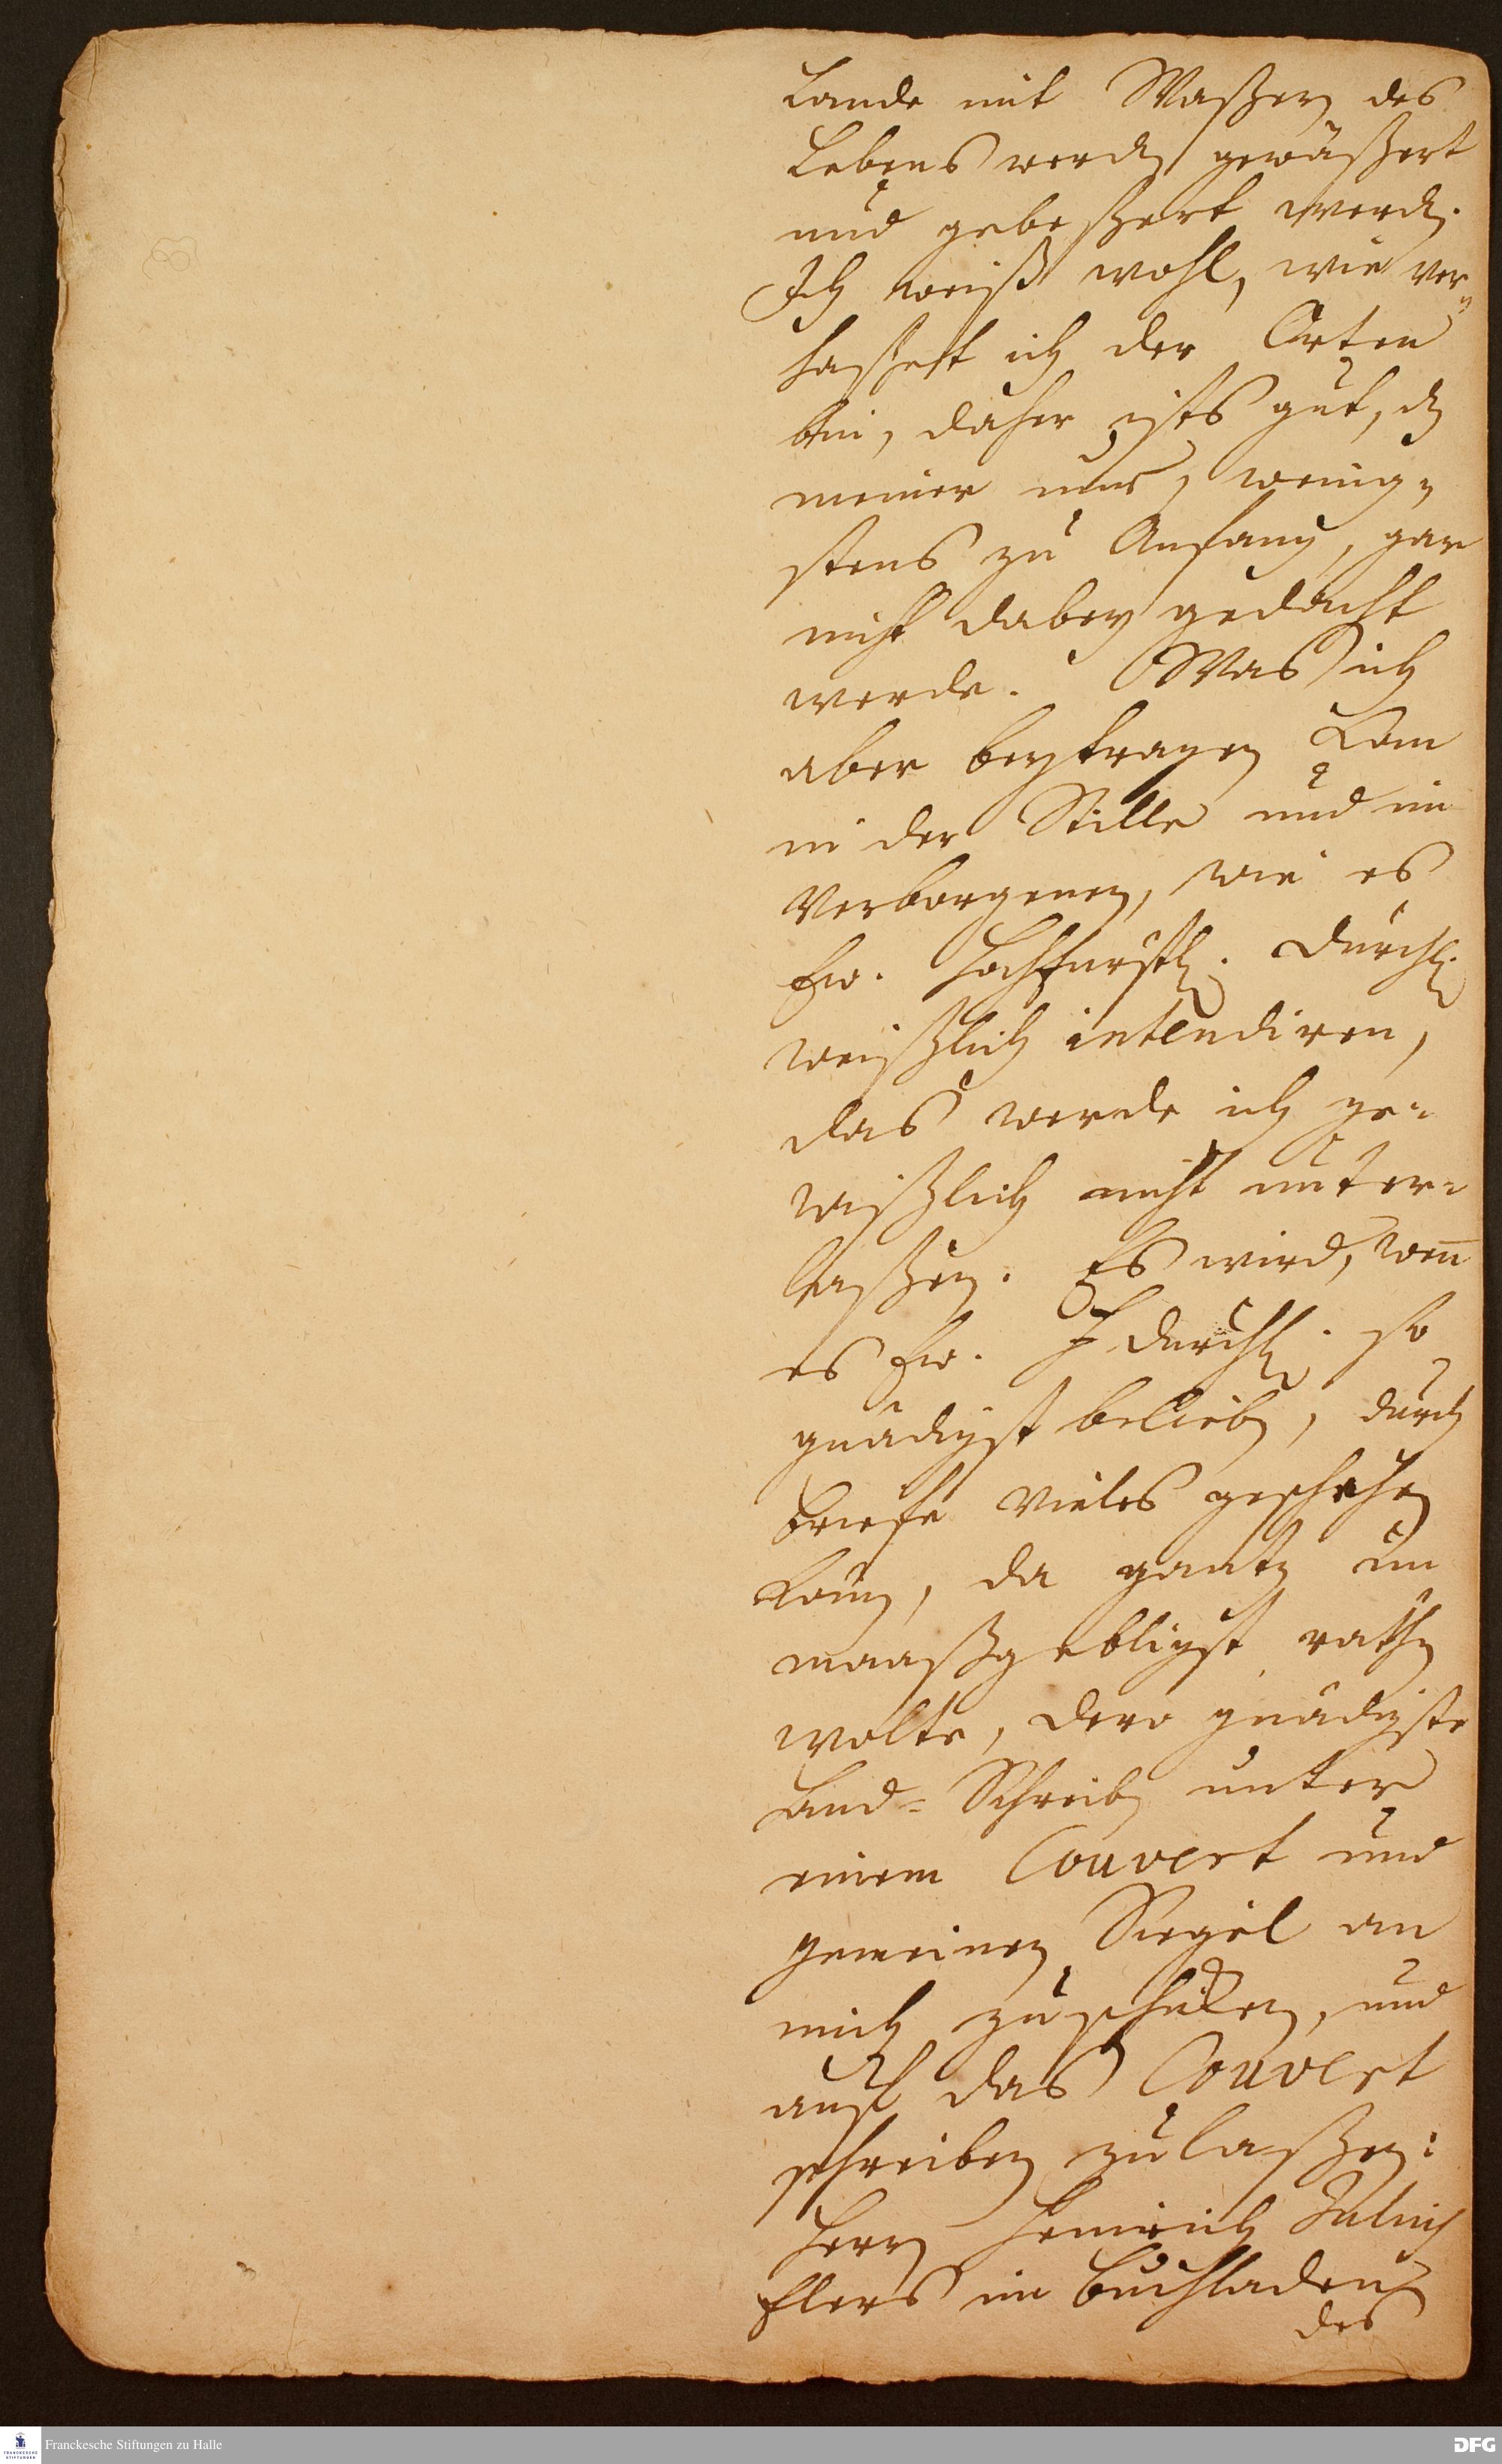 Lande mit Waßern des
Lebens werden gewäßert
und gebeßzert werden.
Ich weiß wohl, wie ver-
haßet ich der Orten
bin, daher ists gut, daß
meiner nur, wenig-
stens zu Anfang, gar
nicht dabey gedacht
werde. Was ich
aber beytragen kan
in der Stille und im
Verborgenen, wie es
Ew. Hochfürstl. Durchl.
weißlich intendiren,
das werde ich ge-
wißlich nicht unter-
laßen. Es wird, wen̄
es Ew. H Durchl. so
gnädigst belieben, durch
briefe vieles geschehen
können, da gantz un
maaßgebligst rathen
wolte, dero gnädigste
Hand-Schreiben unter
einem Couvert und
gemeinen Siegel an
mich zu schicken, und
auf das Couvert
schreiben zu laßen:
Herrn Heinrich Julius
Elers im Buchladen
des
Franckesche Stiftungen zu Halle
FRANCKESCHE STIFTUNGEN
DFG